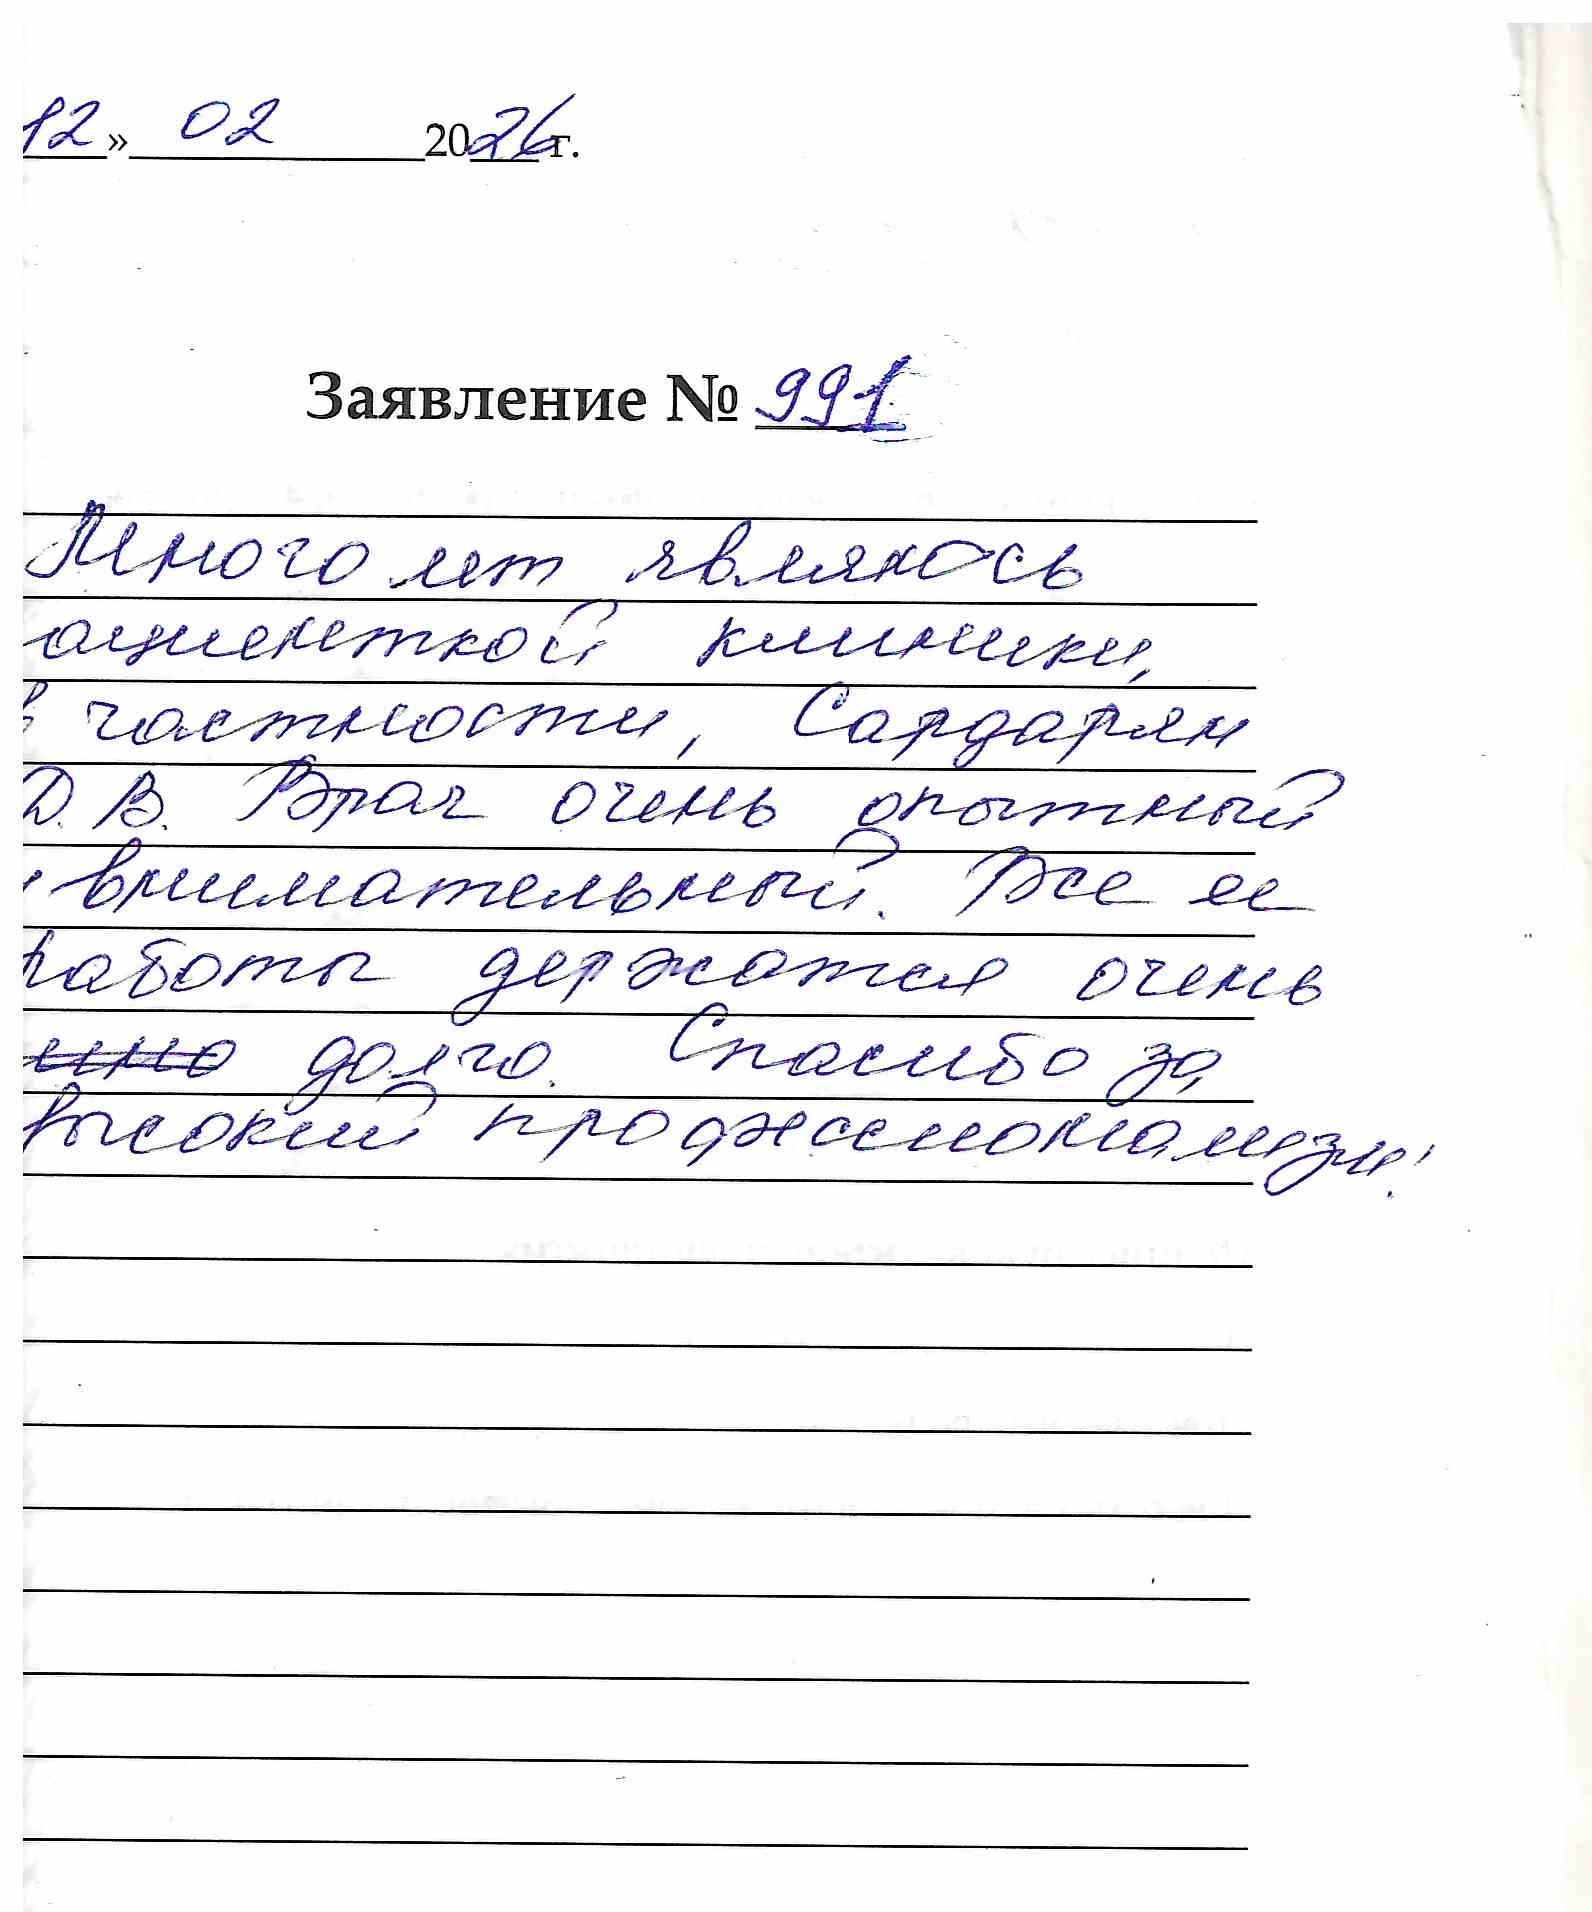 12» 02 2026 г.
Заявление № 991
Много лет являюсь
ациенткой клиники,
в частности, Сардарян
Д. В. Врач очень опытный
и внимательный. Все ее
работы держатся очень
долго. Спасибо за
высокий профессионализм!